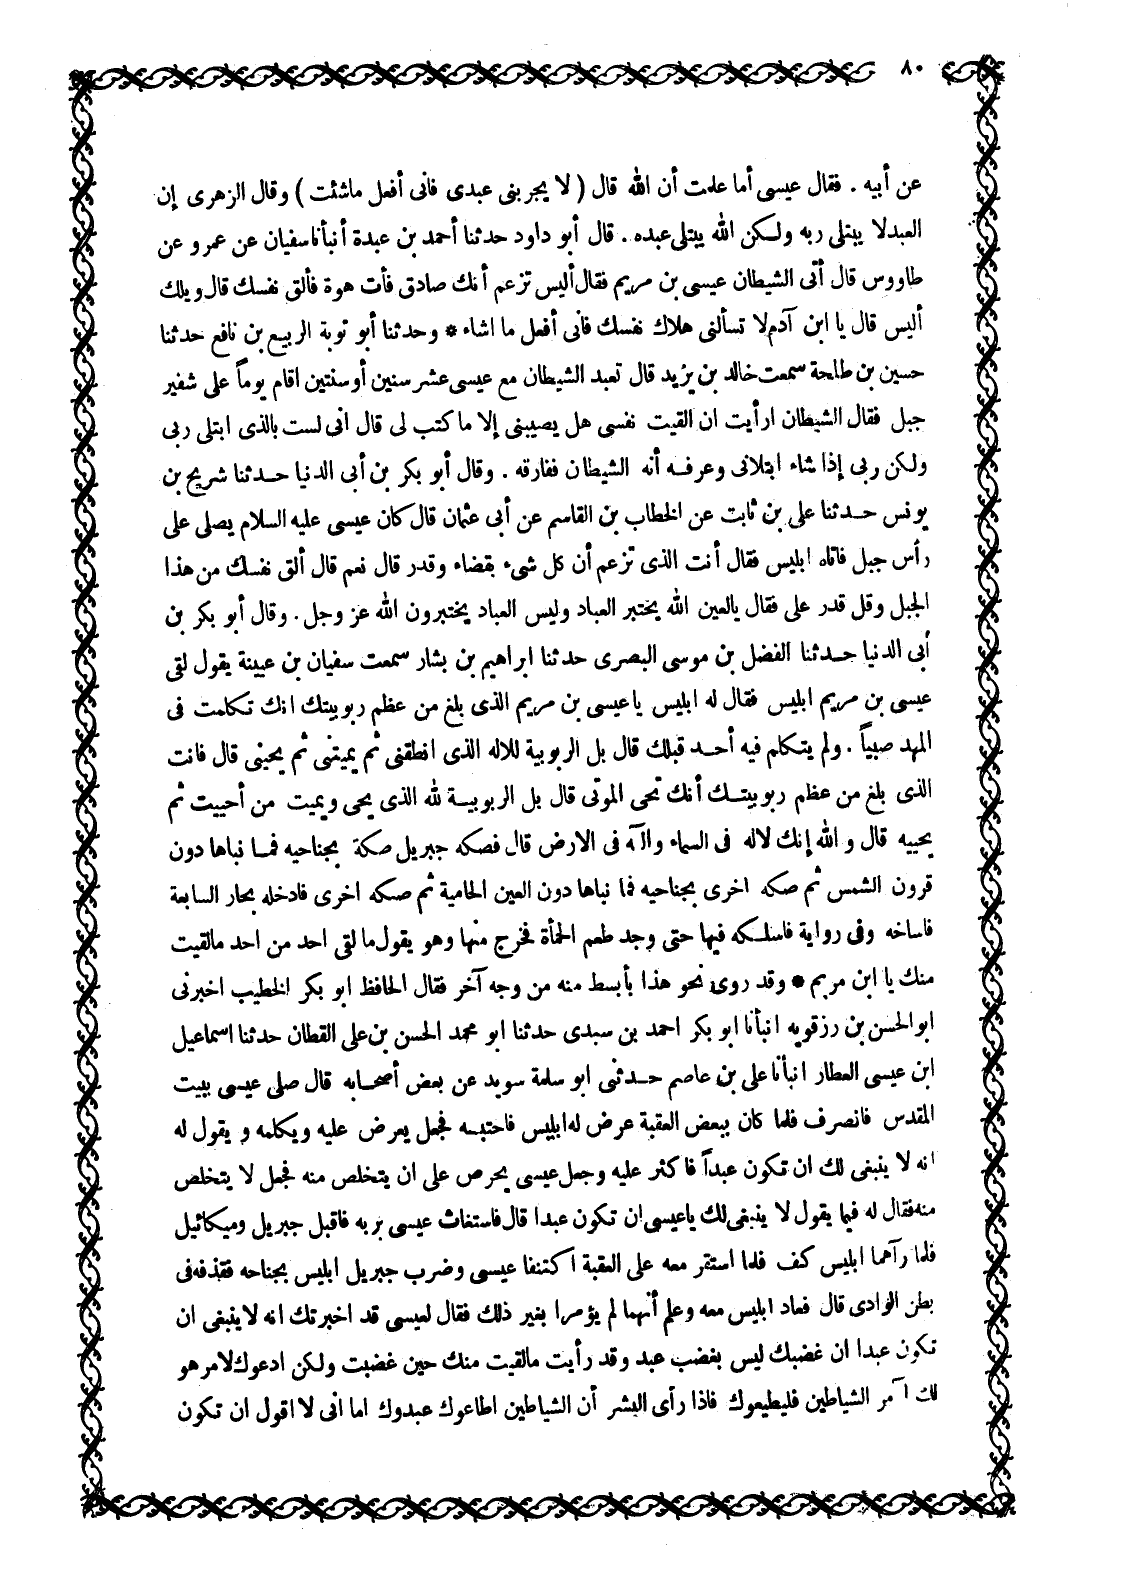 ٨٠
عن أبيه . فقال عيسى أما علمت أن الله قال ( لا يجربنى عبدى فانى أفعل ماشئت ) وقال الزهرى إن
العبدلا يبتلى ربه ولكن الله يبتلى عبده . قال أبو داود حدثنا أحمد بن عبدة أنبأناسفيان عن عمرو عن
طاووس قال أتى الشيطان عيسى بن مريم فقال أليس تزعم أنك صادق فأت هوة فألق نفسك قال ويلك
أليس قال يا ابن آدم لا تسألنى هلاك نفسك فانى أفعل ما اشاء * وحدثنا أبو توبة الربيع بن نافع حدثنا
حسين بن طلحة سمعت خالد بن يزيد قال تعبد الشيطان مع عيسى عشر سنين أوسنتين اقام يوماً على شفير
جبل فقال الشيطان ارأيت ان القيت نفسى هل يصيبنى إلا ما كتب لى قال انى لست بالذى ابتلى ربى
ولكن ربى إذا شاء ابتلانى وعرفه أنه الشيطان ففارقه . وقال أبو بكر بن أبى الدنيا حدثنا شريح بن
يونس حدثنا على بن ثابت عن الخطاب بن القاسم عن أبى عثمان قال كان عيسى عليه السلام يصلى على
رأس جبل فاتاه ابليس فقال أنت الذى تزعم أن كل شىء بقضاء وقدر قال نعم قال ألق نفسك من هذا
الجبل وقل قدر على فقال يالعين الله يختبر العباد وليس العباد يختبرون الله عز وجل . وقال أبو بكر بن
أبى الدنيا حدثنا الفضل بن موسى البصرى حدثنا ابراهيم بن بشار سمعت سفيان بن عيينة يقول لقى
عيسى بن مريم ابليس فقال له ابليس ياعيسى بن مريم الذى بلغ من عظم ربوبيتك انك تكلمت فى
المهد صبياً . ولم يتكلم فيه أحد قبلك قال بل الربوبية للاله الذى انطقنى ثم يميتنى ثم يحيينى قال فانت
الذى بلغ من عظم ربوبيتك أنك تحى الموتى قال بل الربوبية لله الذى يحى ويميت من أحييت ثم
يحييه قال والله إنك لاله فى السماء وإله فى الارض قال فصكه جبريل صكة بجناحيه فما نباها دون
قرون الشمس ثم صكه اخرى بجناحيه فما نباها دون العين الحامية ثم صكه اخرى فادخله بحار السابعة
فاساخه وفى رواية فاسلكه فيها حتى وجد طعم الحمأة فخرج منها وهو يقول ما لقى احد من احد مالقيت
منك يا ابن مريم * وقد روى نحو هذا بأبسط منه من وجه آخر فقال الحافظ ابو بكر الخطيب اخبرنى
ابوالحسن بن رزقويه انبأنا ابو بكر احمد بن سبدى حدثنا ابو محمد الحسن بن على القطان حدثنا اسماعيل
ابن عيسى العطار انبأنا على بن عاصم حدثنى ابو سلمة سويد عن بعض أصحابه قال صلى عيسى ببيت
المقدس فانصرف فلما كان ببعض العقبة عرض له ابليس فاحتبسه فجعل يعرض عليه ويكلمه ويقول له
انه لا ينبغى لك ان تكون عبداً فاكثر عليه وجعل عيسى يحرص على ان يتخلص منه فجعل لا يتخلص
منه فقال له فيما يقول لا ينبغى لك ياعيسى ان تكون عبدا قال فاستغاث عيسى بربه فاقبل جبريل وميكائيل
فلما رآهما ابليس كف فلما استقر معه على العقبة اكتنفا عيسى وضرب جبريل ابليس بجناحه فقذفه فى
بطن الوادى قال فعاد ابليس معه وعلم أنهما لم يؤمرا بغير ذلك فقال لعيسى قد اخبرتك انه لاينبغى ان
تكون عبدا ان غضبك ليس بغضب عبد وقد رأيت مالقيت منك حين غضبت ولكن ادعوك لامر هو
لك آمر الشياطين فليطيعوك فاذا رأى البشر أن الشياطين اطاعوك عبدوك اما انى لا اقول ان تكون